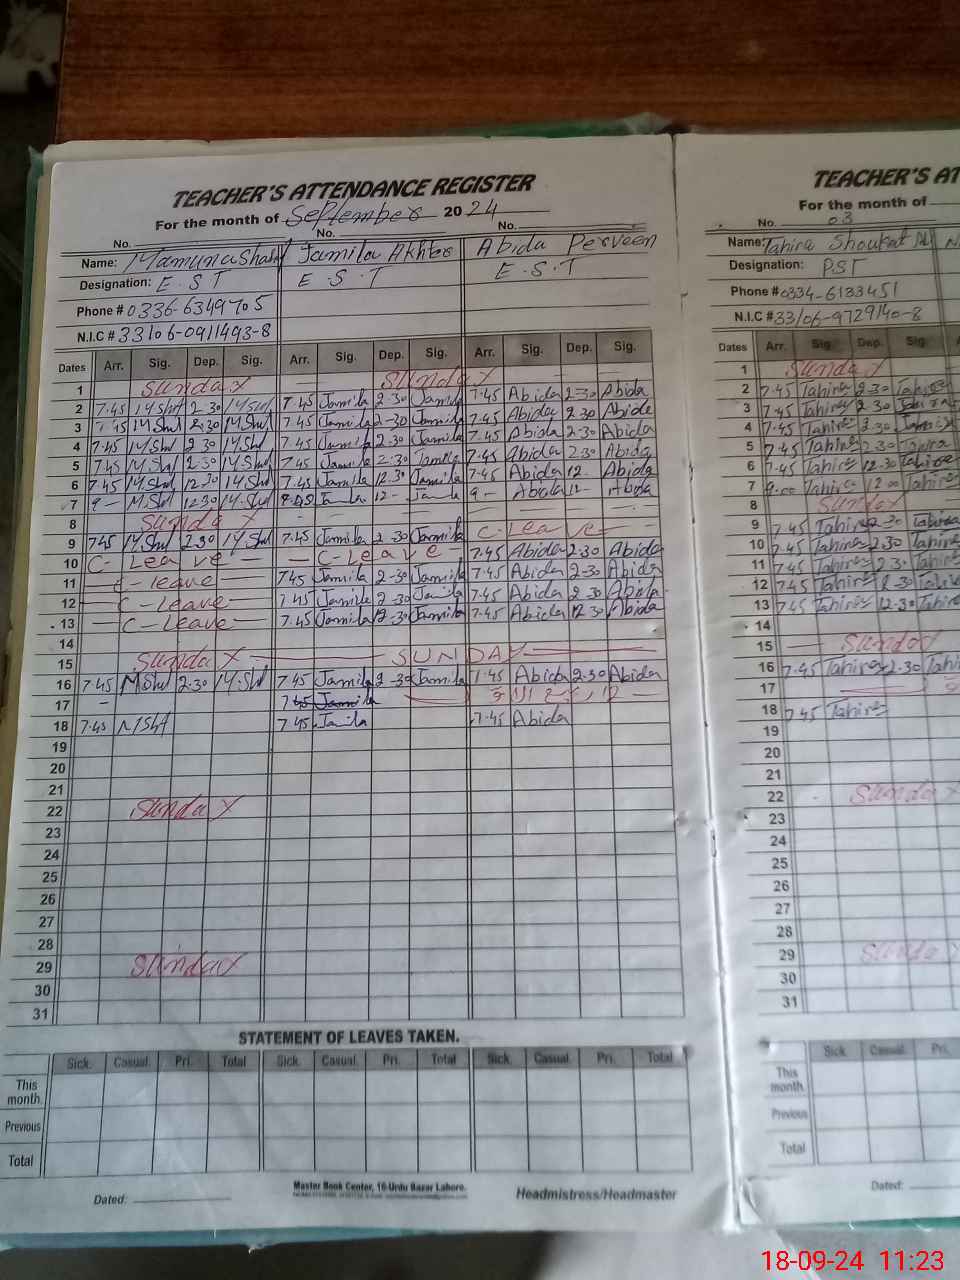 TEACHER'S ATTENDANCE REGISTER
For the month of September 2024
No. No. No.
Name: Jamila Akhter Abida Perveen
Designation: E.S.T E.S.T E.S.T
Phone # 0336-6349705
N.I.C # 33106-0911493-8
Dates Arr. Sig. Dep. Sig. Arr. Sig. Dep. Sig. Arr. Sig. Dep. Sig.
1 Sunday Sunday
2 7.45 2.30 7.45 Jamila 2-30 Jamila 7.45 Abida 2-30 Abida
3 7.45 2.30 7.45 Jamila 2-30 Jamila 7.45 Abida 2.30 Abida
4 7.45 2.30 7.45 Jamila 2-30 Jamila 7.45 Abida 2-30 Abida
5 7.45 2.30 7.45 Jamila 2-30 Jamila 7.45 Abida 2.30 Abida
6 7.45 12.30 7.45 Jamila 12.30 Jamila 7.45 Abida 12- Abida
7 9- 12.30 12- 9- Abida 12- Abida
8 Sunday
9 7.45 2.30 7.45 Jamila 2-30 Jamila C-Leave
10 C-Leave C-Leave 7.45 Abida 2.30 Abida
11 C-leave 7.45 Jamila 2-30 Jamila 7.45 Abida 2.30 Abida
12 C-Leave 7.45 Jamila 2-30 Jamila 7.45 Abida 2.30 Abida
13 C-Leave 7.45 Jamila 12-30 Jamila 7.45 Abida 12.30 Abida
14
15 Sunday SUNDAY
16 7.45 2.30 7.45 Jamila 2-30 Jamila 7.45 Abida 2.30 Abida
17 7.45 Jamila
18 7.45 7.45 Jamila 7.45 Abida
19
20
21
22 Sunday
23
24
25
26
27
28
29 Sunday
30
31
STATEMENT OF LEAVES TAKEN.
Sick. Casual. Pri. Total Sick. Casual. Pri. Total Sick. Casual. Pri. Total
This month.
Previous
Total
Dated:
Master Book Center, 16-Urdu Bazar Lahore.
Headmistress/Headmaster
TEACHER'S AT
For the month of
No. 03
Name: Tahira Shoukat
Designation: PST
Phone # 0334-6133451
N.I.C # 33106-9729140-8
Dates Arr. Sig. Dep. Sig.
1 Sunday
2 7.45 Tahira 2.30 Tahira
3 7.45 Tahira 2.30
4 7.45 Tahira 2.30
5 7.45 Tahira 2.30 Tahira
6 7.45 Tahira 12.30 Tahira
7 9.00 Tahira 12.00 Tahira
8 Sunday
9 7.45 Tahira 2.30 Tahira
10 7.45 Tahira 2.30 Tahira
11 7.45 Tahira 2.30 Tahira
12 7.45 Tahira 2.30 Tahira
13 7.45 Tahira 12.30 Tahira
14
15 Sunday
16 7.45 Tahira 2.30 Tahira
17
18 7.45 Tahira
19
20
21
22 Sunday
23
24
25
26
27
28
29 Sunday
30
31
Sick. Casual. Pri.
This month.
Previous
Total
Dated:
18-09-24 11:23